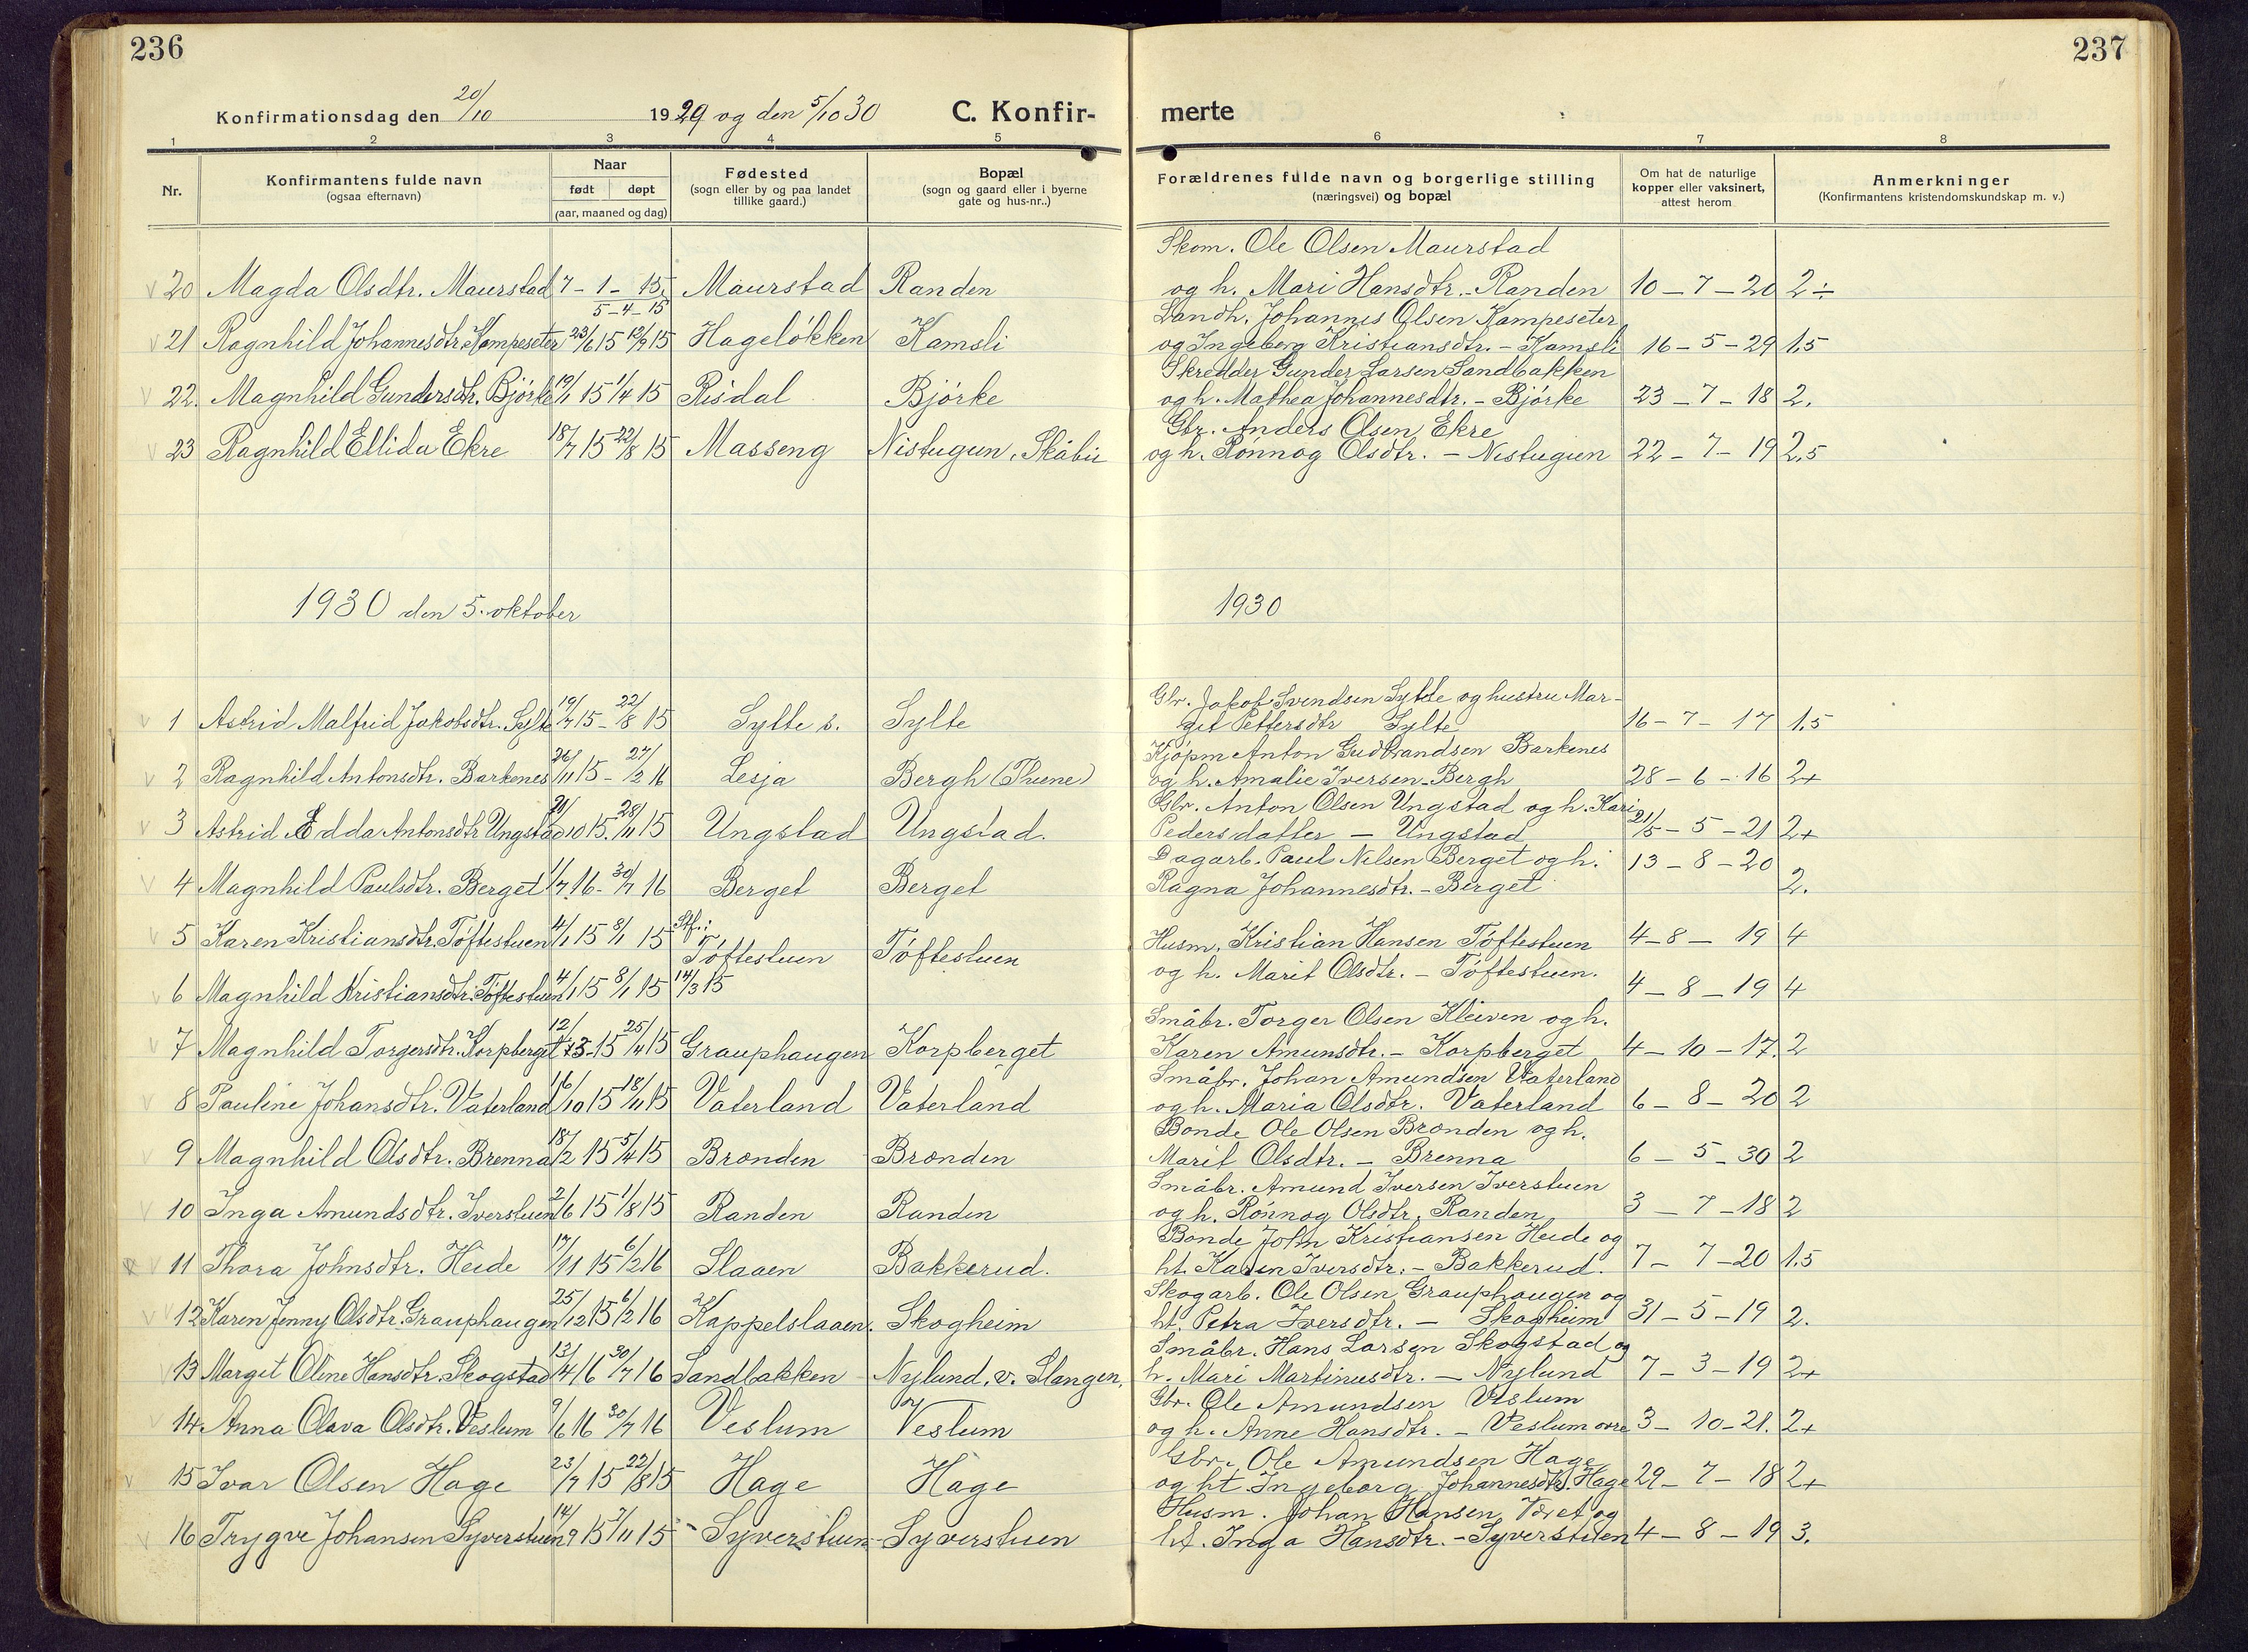 236
237
Konfirmationsdag den 20/10 1929 og den 5/10 30 C. Konfir-
merte
1 2 3 4 5 6 7 8
Nr.
Konfirmantens fulde navn
(ogsaa efternavn)
Naar
født døpt
(aar, maaned og dag)
Fødested
(sogn eller by og paa landet
tillike gaard.)
Bopæl
(sogn og gaard eller i byerne
gate og hus-nr..)
Forældrenes fulde navn og borgerlige stilling
(næringsvei) og bopæl
Om hat de naturlige
kopper eller vaksinert,
attest herom
Anmerkninger
(Konfirmantens kristendomskundskap m. v.)
Skom. Ole Olsen Maurstad
20 Magda Olsdtr. Maurstad 7-1-15. Maurstad Randen og h. Mari Hansdtr. - Randen 10-7-20 2÷
5-4-15
Landh. Johannes Olsen Kampeseter
21 Ragnhild Johannesdtr. Kampeseter 23/6 15 12/9 15 Hageløkken Kamsli og Ingeborg Kristiansdtr. - Kamsli 16-5-29 1.5
Skredder Gunder Larsen Sandbakken
22. Magnhild Gundersdtr. Bjørke 19/1 15 1/4 15 Risdal Bjørke og h. Mathea Johannesdtr. - Bjørke 23-7-18 2.
Gbr. Anders Olsen Ekre
23 Ragnhild Ellida Ekre 18/7 15 22/8 15 Masseng Nistugun, Skåbu og h. Rønnog Olsdtr. - Nistugun 22-7-19 2.5
1930 den 5. oktober
1930
Gbr. Jakob Svendsen Sylte og hustru Mar-
1 Astrid Malfrid Jakobsdtr. Sylte 19/7 15 - 22/8 15 Sylte s. Sylte git Pettersdtr Sylte 16-7-17 1.5
Kjøpm Anton Gudbrandsen Barkenes
2 Ragnhild Antonsdtr. Barkenes 26/11 15 - 27/2 16 Lesja Bergh (Thune) og h. Amalie Iversen - Bergh 28-6-16 2+
Gbr. Anton Olsen Ungstad og h. Kari
3 Astrid Edda Antonsdtr Ungstad 21/10 15. 28/11 15 Ungstad Ungstad. Pedersdatter - Ungstad 21/5-5-21 2+
Dagarb. Paul Nilsen Berget og h. 13-8-20
4 Magnhild Paulsdtr. Berget 1/7 16 - 30/7 16 Berget Berget Ragna Johannesdtr. - Berget 2.
5 Karen Kristiansdtr. Tøftestuen 4/1 15 8/1 15 Stf. i Tøftestuen Tøftestuen Husm. Kristian Hansen Tøftestuen 4-8-19 4
og h. Marit Olsdtr. - Tøftestuen.
6 Magnhild Kristiansdtr. Tøftestuen 4/1 15 8/1 15 14/3 15 4-8-19 4
Småbr. Torger Olsen Kleiven og h.
7 Magnhild Torgersdtr. Korpberget 12/3 15 25/4 15 Grauphaugen Korpberget Karen Amunsdtr. - Korpberget 4-10-17. 2
Småbr. Johan Amundsen Vaterland
8 Pauline Johansdtr. Vaterland 16/10 15 18/11 15 Vaterland Vaterland og h. Maria Olsdtr. Vaterland 6-8-20 2
Bonde Ole Olsen Brønden og h.
9 Magnhild Olsdtr. Brenna 18/2 15 5/4 15 Brønden Brønden Marit Olsdtr. - Brenna 6-5-30 2
Småbr. Amund Iversen Iverstuen
10 Inga Amundsdtr. Iverstuen 2/6 15 1/8 15 Randen Randen og h. Rønnog Olsdtr. Randen 3-7-18 2
Bonde John Kristiansen Heide og
11 Thora Johnsdtr. Heide 17/11 15 6/2 16 Slaaen Bakkerud. ht. Karin Iversdtr. - Bakkerud. 7-7-20 1.5
Skogarb. Ole Olsen Grauphaugen og
12 Karen Jenny Olsdtr. Grauphaugen 25/12 15 6/2 16 Kappelslaaen. Skogheim ht. Petra Iversdtr. - Skogheim 31-5-19 2.
Småbr. Hans Larsen Skogstad og
13 Margit Oline Hansdtr. Skogstad 13/4 16 30/7 16 Sandbakken Nylund. v. Slangen, h. Mari Martinusdtr. - Nylund 7-3-19 2+
Gbr. Ole Amundsen Veslum
14. Anna Olava Olsdtr. Veslum 9/6 16 30/7 16 Veslum Veslum og h. Anne Hansdtr. - Veslum 3-10-21. 2+
Gbr. Ole Amundsen Hage
15 Ivar Olsen Hage 23/7 15 22/8 15 Hage Hage og ht. Ingeborg Johannesdtr. Hage 29-7-18 2+
Husm. Johan Hansen og
16 Trygve Johansen Syverstuen 14/9 15 7/11 15 - Syverstuen - Syverstuen ht. Inga Hansdtr. - Syverstuen 4-8-19 3.